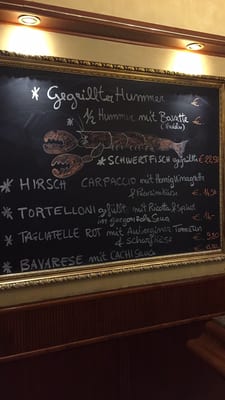 * Gegrillter Hummer €
* ½ Hummer mit Bavette €
(Nudeln)
* SCHWERTFISCH gegrillt € 22,50
* HIRSCH CARPACCIO mit Honig Vinaigrette
& € 14,50
* TORTELLONI gefüllt mit Ricotta & Spinat
in Sauce € 14.-
* TAGLIATELLE ROT mit Auberginen Tomaten
& Schafskäse € 9,50
* BAVARESE mit CACHI Sauce €